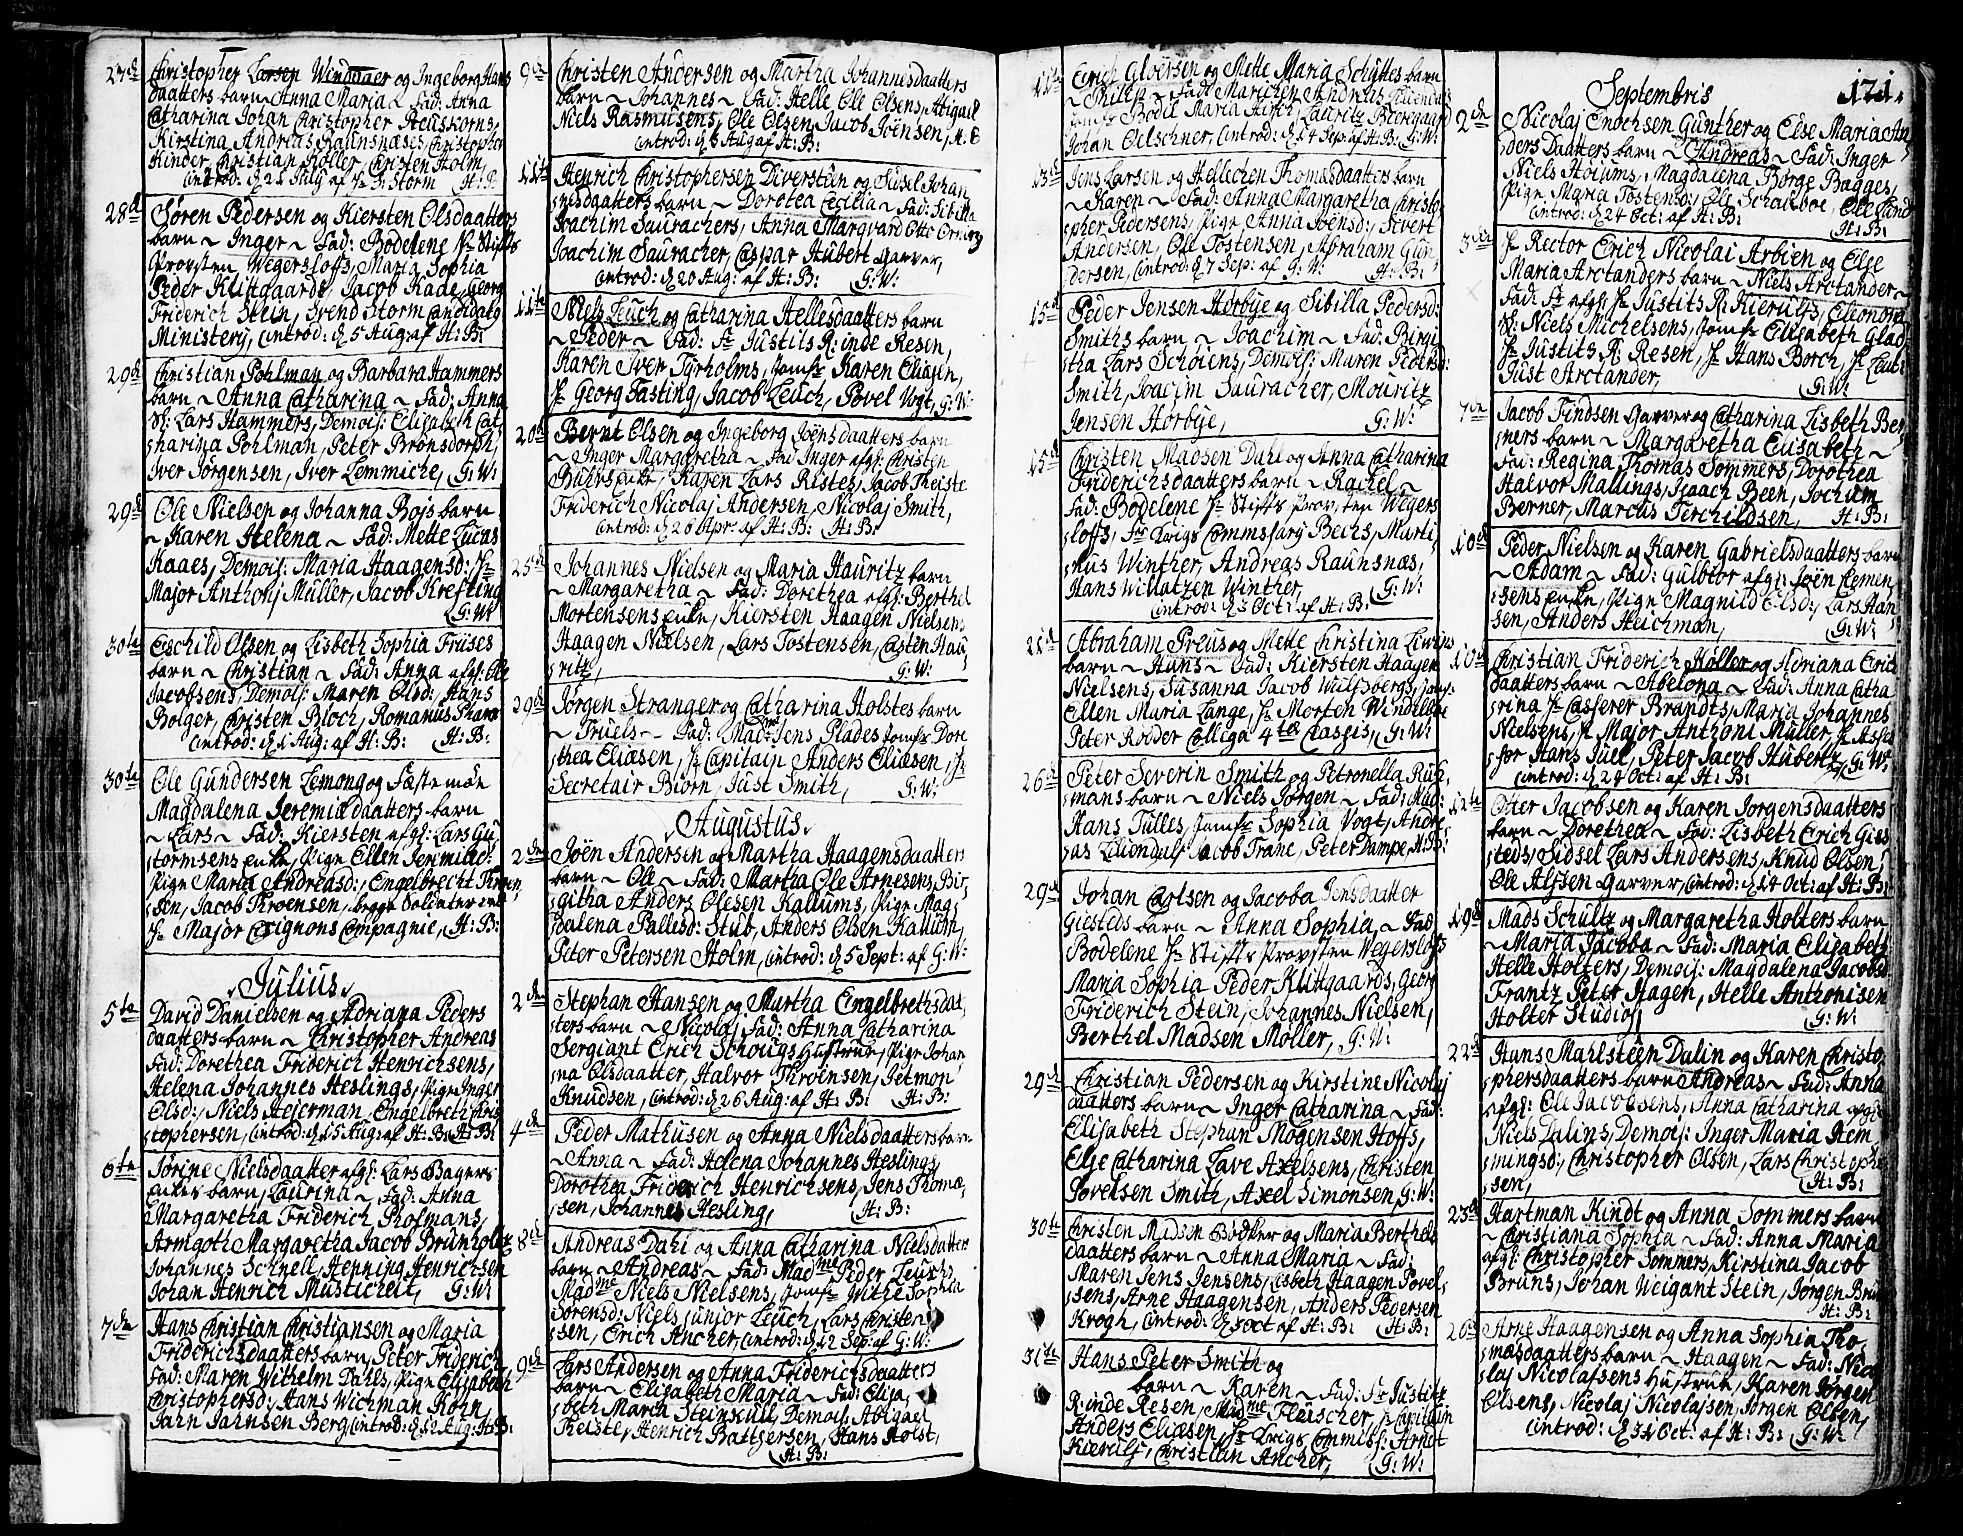 27d Christopher Larsen Winddaer og Ingeborg Hans
daatters barn ~ Anna Maria ~ Fad: Anna
Catharina Johan Christopher
Kirstina Andreas Raunsnæses, Christopher
Kinder, Christian Koller, Christen Holm,
introd: d 21 Aug af Hr S: Storm H: B:
28d Søren Pedersen og Kiersten Olsdaatters
barn ~ Inger ~ Fad: Bodelene Hr Stifts
Provsten Wegersloffs, Maria Sophia
Peder Klitgaards, Jacob Kaae, Georg
Friderich Stein, Svend Storm Candidaty
Ministery, introd: d 5 Aug af H: B:
29d Christian Pohlman og Barbara Hammers
barn ~ Anna Catharina ~ Fad: Anna
Sl: Lars Hammers, Demois: Elisabeth Cat-
harina Pohlman, Peter Brønsdorph,
Iver Jørgensen, Iver Lemmiche, G: W:
29d Ole Nielsen og Johanna Bojs barn
~ Karen Helena ~ Fad: Mette Lucas
Kaaes, Demois: Maria Haagensd:, Hr
Major Anthonj Müller, Jacob Krefting
G: W:
30te Eschild Olsen og Lisbeth Sophia Friises
barn ~ Christian ~ Fad: Anna afgl: Ole
Jacobsens, Demois: Maren Olsd: Hans
Bolger, Christen Bloch, Romanus
introd: d 1 Aug: af H: B: H: B:
30te Ole Gundersen Lemong og Fæstemøe
Magdalena Jeremiædaatters barn
~ Lars ~ Fad: Kiersten afgl: Lars Gu
tormsens enke, Pige Ellen Jeremiæd:
Pige Maria Andreasd:, Engelbrecht Thoen
sen, Jacob Throensen, begge Soldater ved
Hr Major Coignons Compagnie, H: B:
Julius
5te David Danielsen og Adriana Peders
daatters barn ~ Christopher Andreas
Fad: Dorethea Friderich Henrichsens,
Helena Johannes Heslings, Pige Inger
Olsd:, Niels Hejerman, Engelbreth Chris
tophersen, introd: d 15 Aug af H: B: H: B:
6te Sørine Nielsdaatter afgl: Lars Bagers
Enkes barn, Laurina ~ Fad: Anna
Margaretha Friderich Thofmans,
Armgoth Margaretha Jacob Brunholtz
Johannes Schnell, Henning Henrichsen
Johan Henrich Musticheit, G: W:
7de Hans Christian Christiansen og Maria
Friderichsdaatters barn, Peter Friderich
Fad: Maren Wilhelm Dahls, Pige Elisabeth
Christophersd:, Hans Wichman Korn,
Jahn Jahnsen Berg, introd: d 12 Aug: H: B:
9de Christen Andersen og Martha Johannesdaatters
barn ~ Johannes ~ Fad: Helle Ole Olsens, Abigael
Niels Rasmusens, Ole Olsen, Jacob Joensen, H: B
introd: d 5 Aug af H: B:
11te Henrich Christophersen Diversteen og Susel Johan
nisdaatters barn ~ Dorotea Cecilia ~ Fad: Sibilla
Joachim Saurachers, Anna Marqvard Otto Orning
Joachim Sauracher, Caspar Hubert Garver,
introd: d 20 Aug: af H: B: G: W:
11te Niels Leuch og Catharina Hellesdaatters barn
~ Peder ~ Fad: Fr Justits R: inde Resen,
Karen Iver Tyrholms, Jomfr Karen Eliasen,
Hr Georg Fasting, Jacob Leuch, Povel Vogt, G: W:
20d Bernt Olsen og Ingeborg Joënsdaatters barn
~ Inger Margaretha ~ Fad Inger afgl: Christen
Buhrs enke, Karen Lars Ristes, Jacob Theiste
Friderich Nicolaj Andersen, Nicolaj Smith,
introd: d 26 Apr: af H: B: H: B:
25de Johannes Nielsen og Maria Hauritz barn
~ Margaretha ~ Fad: Dorethea afgl: Berthel
Mortensens enke, Kiersten Haagen Nielsens
Haagen Nielsen, Lars Tostensen, Casten Hau
ritz, G: W:
29de Jørgen Stranger og Catharina Holstes barn
~ Truels ~ Fad: Madme Jens Plades Jomfr Doro
thea Eliæsen, Hr Capitain Anders Eliæsen, Hr
Secretair Biørn, Just Smith, G: W:
Augustus
2de Joën Andersen og Martha Haagensdaatters
barn ~ Ole ~ Fad: Martha Ole Arnesens, Bir-
githa Anders Olesen Kallums, Pige Mag-
dalena Pallesd: Stub, Anders Olsen Kallum,
Peter Petersen Holm, introd: d 5 Sept: af G: W:
2de Stephan Hansen og Martha Engelbrethsdaat-
ters barn ~ Nicolaj Fad: Anna Catharina
Sergiant Erich Schougs Hustrue, Pige Johan
na Olsdaatter, Halvor Throënsen, Jetmon
Knudsen, introd: d 26 Aug: af H: B: H: B:
4de Peder Mathisen og Anna Nielsdaatters barn
~ Anna ~ Fad: Helena Johannes Heslings
Dorothea Friderich Henrichsens, Jens Thomæ-
sen, Johannes Hesling, H: B:
8de Andreas Dahl og Anna Catharina Nielsdatters
barn ~ Andreas ~ Fad: Madme Peder Leuchs
Madme Niels Nielsens, Jomfr Withe Sophia
Sørensd: Niels junior Leuch, Lars Christen
sen, Erich Ancher, introd: d 12 Sep: af G: W:
9de Lars Andersen og Anna Friderichsdaatters
barn ~ Elisabeth Maria ~ Fad: Elisa-
beth Maria Steinkull, Demois: Abigael
Theiste, Henrich Battgersen, Hans Holst,
H: B:
11te Erich Glversen og Mette Maria Schüttes barn
~ Philip ~ Fad: Marichen Andreas
Jomfr Bodil Maria Hirch, Lauritz Biergaard
Johan Oelschner, introd: d 14 Sep: af H: B: G: W:
13de Jens Larsen og Hellechen Thomæsdaatters barn
~ Karen ~ Fad: Anna Margaretha Christo
pher Pedersens, Pige Anna Joensd:, Sivert
Andersen, Ole Tostensen, Abraham Gun
dersen, introd: d 7 Sep: af G: W: H: B:
15d Peder Jensen Horbye og Sibilla Pedersd:
Smiths barn ~ Joachim ~ Fad: Birgi
tha Lars Schøiens, Demois: Maren Pedersd:
Smith, Joacim Sauracher, Mouritz
Jensen Horbye, G: W:
15d Christen Madsen Dahl og Anna Catharina
Friderichsdaatters barn ~ Rachel ~
Fad: Bodelene Hr Stifts Provsten Wegers
loffs, Fr Krigs Commissary Bechs, Marti
nus Winther, Andreas Raunsnæs,
Hans Willatzen Winther,
introd: d 3 Oct: af H: B: G: W:
21d Abraham Preus og Mette Christina Lewins
barn ~ Hans ~ Fad: Kiersten Haagen
Nielsens, Susanna Jacob Wulfsbergs, Jomfr
Ellen Maria Lange, Hr Morten Windelboe
Peter Rodder Collega 4tæ Classis, G: W:
26d Peter Severin Smith og Petronella Ruh-
mans barn ~ Niels Jørgen ~ Fad: Mad:
Hans Tulles, Jomfr Sophia Vogt, Andre-
as Jacob Trane, Peter Dampe, H: B:
29d Johan Carlsen og Jacoba Jensdaatter
Giesteds barn ~ Anna Sophia ~ Fad:
Bodelene Hr Stiffts Provsten Wegersloffs
Maria Sophia Peder Klitgaards, Georg
Friderich Stein, Johannes Nielsen,
Berthel Madsen Møller, G: W:
29d Christian Pedersen og Kirstine Nicolaj
daatters barn ~ Inger Catharina ~ Fad:
Elisabeth Stephan Mogensen Hoffs,
Else Catharina Lave Axelsens, Christen
Sørensen Smith, Axel Simonsen, G: W:
30te Christen Madsen Bødker og Maria Berthels
daatters barn ~ Anna Maria ~ Fad:
Maren Jens Jensens, Lisbeth Haagen Povel-
sens, Arne Haagensen, Anders Pedersen
Krogh, introd: d 5 Oct af H: B: H: B:
31te Hans Peter Smith og
barn ~ Karen ~ Fad: Fr Justitz
R: inde Resen, Madme Fleischer, Hr Capitain
Anders Eliæsen, Hr Krigs Commiss: Arndt
Kierulf, Christian Ancher, G: W:
121.
Septembris
2de Nicolaj Enochsen Günther og Else Maria An
ders Daatters barn ~ Andreas ~ Fad: Inger
Niels Hoiums, Magdalena Børge Bagges,
Pige Maria Tostensd:, Ole Schaleboe, Ole Lund
introd: d 24 Oct: af H: B: H: B:
3die Hr Rector Erich Nicolai Arbien og Else
Maria Arctanders barn ~ Niels Arctander ~
Fad: Fr afgl: Hr Justits R: Kierulfs, Eleonora
Sl: Niels Michelsens, Jomfr Elisabeth Glad
Hr Justits R: Resen, Hr Hans Borch, Hr Leut:
Just Arctander, G: W:
7de Jacob Findsen Garver og Catharina Lisbeth Ber
ners barn ~ Margaretha Elisabeth ~
Fad: Regina Thomas Sommers, Dorothea
Halvor Mallings, Isaach Been, Jochum
Berner, Marcus Terchildsen, H: B:
10de Peder Nielsen og Karen Gabrielsdaatters barn
~ Adam ~ Fad: Gulbior afgl: Joën Clemen
sens enke, Pige Magnild Olsd:, Lars Han
sen, Anders Heichman, G: W:
10d Christian Friderich Holler og Adriana Erich
daatters barn ~ Abelona ~ Fad: Anna Catha
rina Hr Casserer Brandts, Maria Johannes
Nielsens, Hr Major Anthoni Müller, Hr Asses
sor Hans Juell, Peter Jacob Hubert,
introd: d 24 Oct: af H: B: G: W:
12te Otter Jacobsen og Karen Jørgensdaatters
barn ~ Dorethea ~ Fad: Lisbeth Erich Gies
teds, Sidsel Lars Andersens, Knud Olsen,
Ole Alfsen Garver, introd: d 14 Oct: af H: B:
19d Mads Schultz og Margaretha Holters barn
~ Maria Jacoba ~ Fad: Maria Elisabeth
Helle Holters, Demois: Magdalena Jacobsd:
Frantz Peter Hagen, Helle Anthonisen
Holter Studios, G: W:
22d Hans Mahlsteen Dalin og Karen Christo-
phersdaatters barn Andreas ~ Fad: Anna
afgl: Ole Jacobsens, Anna Catharina afgl:
Niels Dalins, Demois: Inger Maria Hem-
mingsd:, Christopher Olsen, Lars Christophe
sen, H: B:
23d Hartman Kindt og Anna Sommers barn
~ Christiana Sophia ~ Fad: Anna Maria
afgl: Christopher Sommers, Kirstina Jacob
Bruns, Johan Weigant Stein, Jørgen Brun
H: B:
26d Arne Haagensen og Anna Sophia Tho-
mæsdaatters barn ~ Haagen ~ Fad: Nico
laj Nicolajsens Hustrue, Karen Jørgen
Olsens, Nicolaj Nicolajsen, Jørgen Olsen,
introd: d 31 Oct: af H: B: G: W: